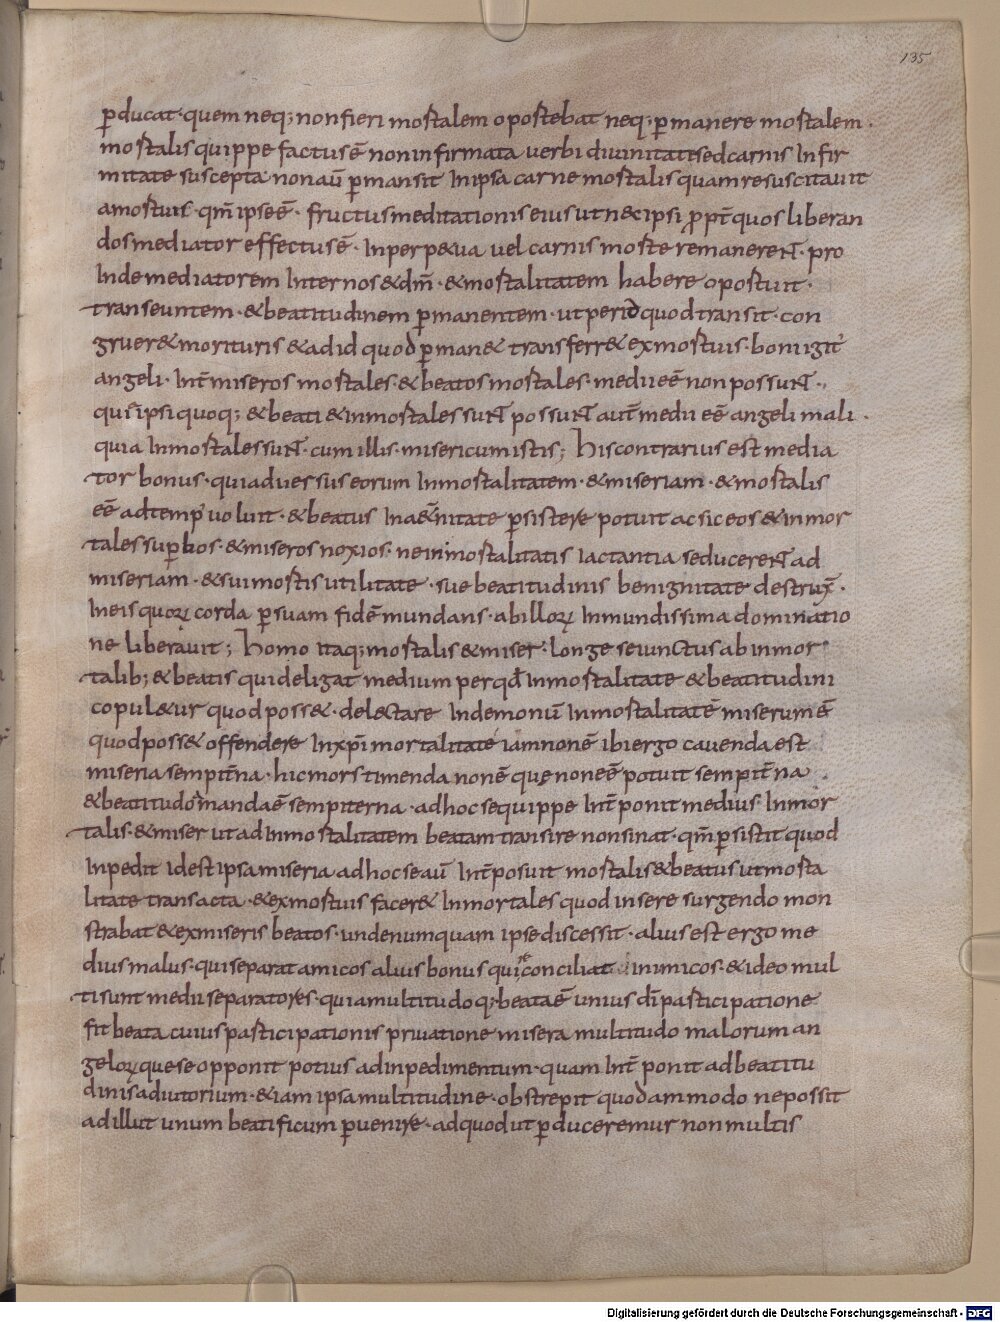 135
p̱ducat·quem neq; non fieri mortalem oportebat neq; p̱manere mortalem·
mortalis quippe factus ē non infirmata uerbi diuinitate sed carnis Infir
mitate suscepta non aū p̱mansit In ipsa carne mortalis quam resuscitauit
a mortuis· qm̄ ipse ē· fructus meditationis eius ut n& ipsi ꝓpt̄ quos liberan
dos mediator effectus ē· In perp&ua uel carnis morte remanerent· pro
Inde mediatorem Inter nos & dm̄· & mortalitatem habere oportuit·
transeuntem·& beatitudinem p̱manentem· ut per id quod transit· con
gruer& morituris & ad id quod p̱man& transferr& ex mortuis· boni igit̄
angeli· Int̄ miseros mortales·& beatos mortales· medii eē non possunt·,
qui ipsi quoq; & beati & inmortales sunt possunt aut̄ medii eē angeli mali·
quia Inmortales sunt· cum illis· miseri cum istis; His contrarius est media
tor bonus· qui aduersus eorum Inmortalitatem·& miseriam·& mortalis
eē ad temp' uoluit·& beatus In aet̄nitate p̱sistere potuit ac sic eos & inmor
tales sup̱bos·& miseros noxios· ne inmortalitatis Iactantia seducerent ad
miseriam·& sui mortis utilitate· sue beatitudinis benignitate destrux̄·
In eis quoꝝ corda p̱ suam fidē mundans· ab illoꝝ Inmundissima dominatio
ne liberauit; Homo itaq; mortalis & miser· longe seiunctus ab inmor
talib; & beatis quid eligat medium per qd̄ Inmortalitate & beatitudini
copul&ur quod poss&· delectare In demoniū Inmortalitatē miserum ē
quod poss& offendere In xp̄i mortalitate iam non ē ibi ergo cauenda est
miseria sempit̄na· hic mors timenda non ē quę non eē potuit sempit̄na·
& beatitudo amanda ē sempiterna· ad hoc se quippe Int̄ponit medius· Inmor
talis·& miser ut ad Inmortalitatem beatam transire non sinat· qm̄ p̱sistit quod
Inpedit id est ipsa miseria ad hoc se aū Int̄posuit mortalis & beatus ut morta
litate transacta·& ex mortuis facer& Inmortales quod in se resurgendo mon
strabat & ex miseris beatos· unde numquam ipse discessit· alius est ergo me
dius malus· qui separat amicos alius bonus qui reconciliat inimicos·& ideo mul
ti sunt medii separatores· quia multitudo q; beata ē unius dī participatione
fit beata cuius participationis priuatione misera multitudo malorum an
geloꝝ que se opponit potius ad inpedimentum· quam Int̄ponit ad beatitu
dinis adiutorium·& iam ipsa multitudine· obstrepit quodammodo ne possit
ad illut unum beatificum p̱uenire· ad quod ut p̱duceremur non multis
Digitalisierung gefördert durch die Deutsche Forschungsgemeinschaft - DFG